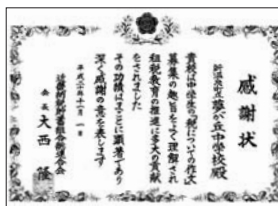 感謝状
新温泉町立夢が丘中学校殿
貴校は中学生の税についての作文
募集の趣旨をよく理解され
租税教育の推進に多大の貢献
をされました
その功績はまことに顕著であり
深く感謝の意を表します
平成二十年十一月一日
近畿納税貯蓄組合総連合会
会長 大西